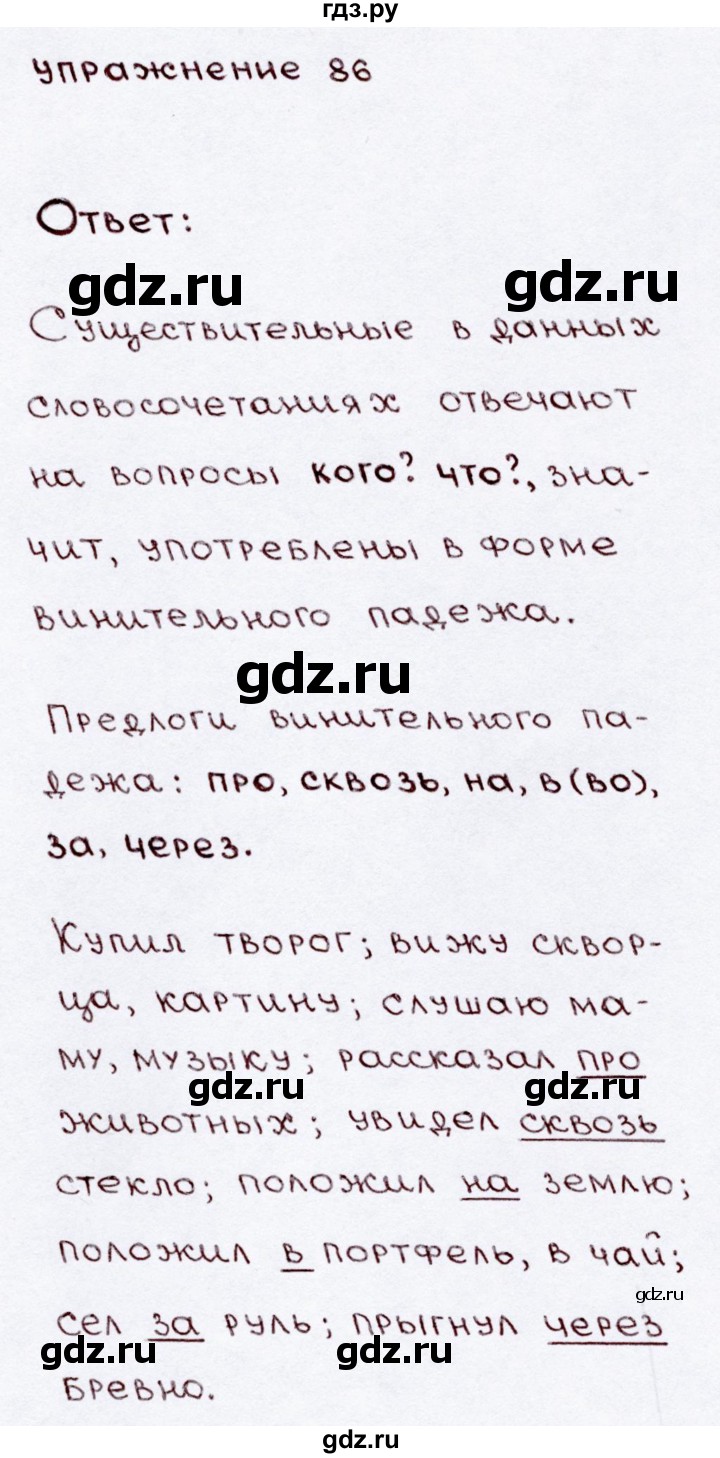 гдз.ру
упражнение 86
Ответ:
gdz.ru
gdz.ru
Существительные в данных
словосочетаниях отвечают
на вопросы кого? что?, зна-
чит, употреблены в форме
винительного падежа.
gdz.ru
Предлоги винительного па-
дежа: про, сквозь, на, в (во),
за, через.
Купил творог; вижу сквор-
ца, картину; слушаю ма-
му, музыку; рассказал про
gdz.ru
gdz.ru
животных; увидел сквозь
стекло; положил на землю;
положил в портфель, в чай;
gdz.ru
сел за руль; прыгнул через
gdz.ru
gdz.ru
бревно.
gdz.ru